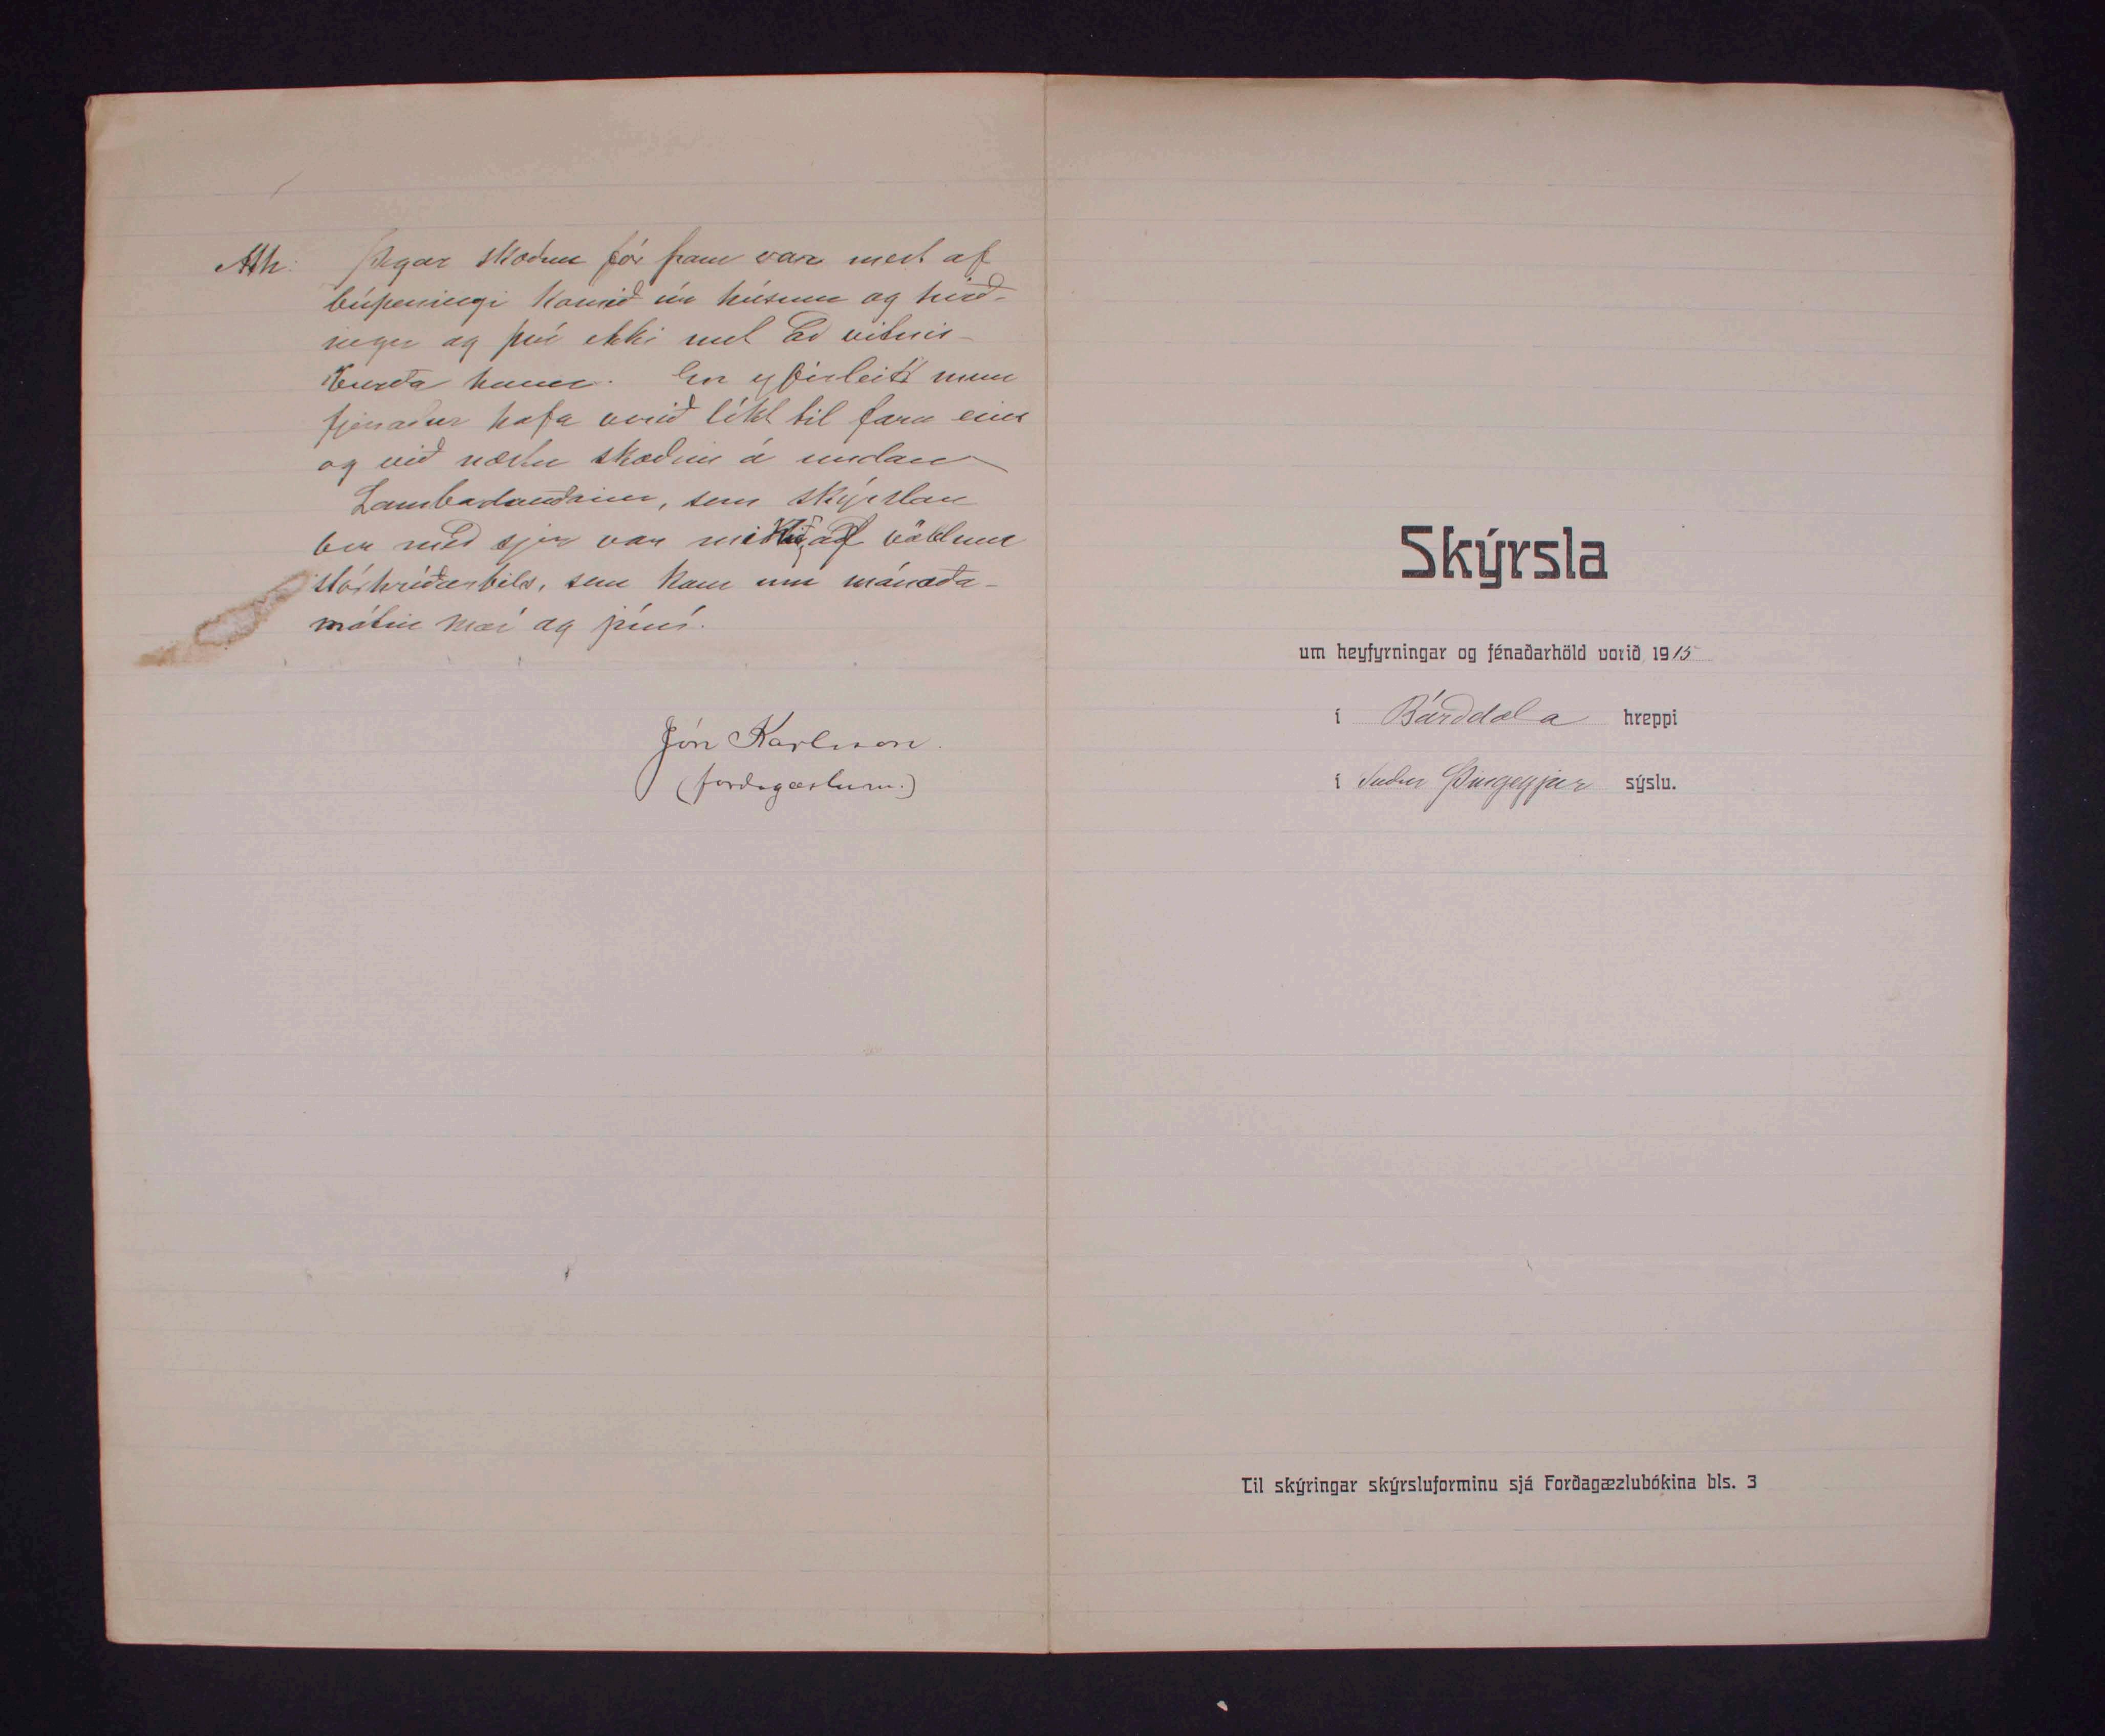 Ath: Þegar skoðun fór fram var mest af
búpeningi komið úr húsum og hirð-
ingu og því ekki unt að vitnis-
burða hana. En yfirleitt mun
fjenaður hafa verið líkt til fara eins
og við næstu skoðun á undan
Lambadauðinn, sem skýrslan
ber með sjer var mikið af völdum
stórhríðarbils, sem kom um mánaða-
mótin maí og júní.
Jón Karlsson.
(forðagæslum.)
Skýrsla
um heyfyrningar og fénaðarhöld vorið 1915
í Bárðdæla hreppi
í Suður Þingeyjar sýslu.
Til skýringar skýrsluforminu sjá Forðagæzlubókina bls. 3